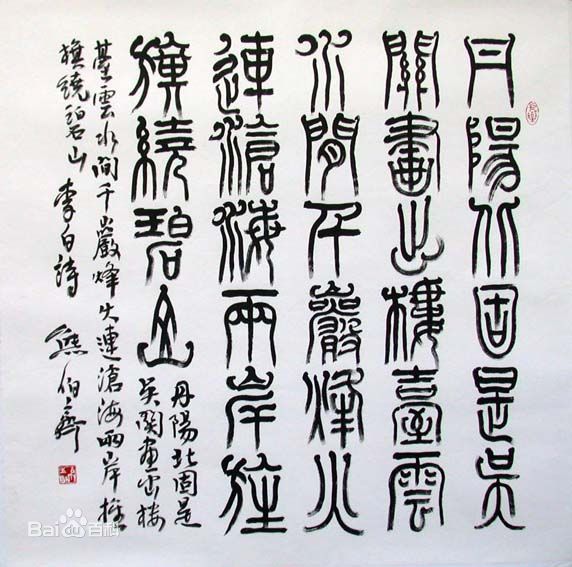 丹陽北固是吳
關畫出樓臺雲
水間千巖烽火
連滄海兩岸旌
旗繞碧山
丹陽北固是
吳關畫出樓
臺雲水間千巖烽火連滄海兩岸旌
旗繞碧山 李白詩 熊伯齊
Bai百科